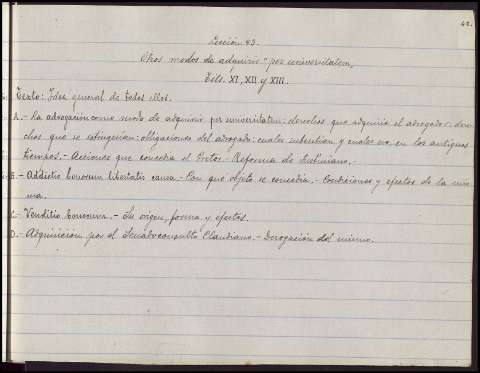 42.
Lección 83.
Otros modos de adquirir "per universitatem"
Tits. XI, XII y XIII.
Texto: Idea general de todos ellos.
A.- La adrogación como modo de adquirir per universitatem: derechos que adquiría el adrogador: dere-
chos que se extinguían: obligaciones del adrogado: cuales subsistían y cuales no, en los antiguos
tiempos.- Acciones que concedía el Pretor.- Reforma de Justiniano.-
B.- Addictio bonorum libertatis causa.- Con qué objeto se concedía.- Condiciones y efectos de la mis-
ma.
C.- Venditio bonorum.- Su origen, forma y efectos.
D.- Adquisición por el Senadoconsulto Claudiano.- Derogación del mismo.